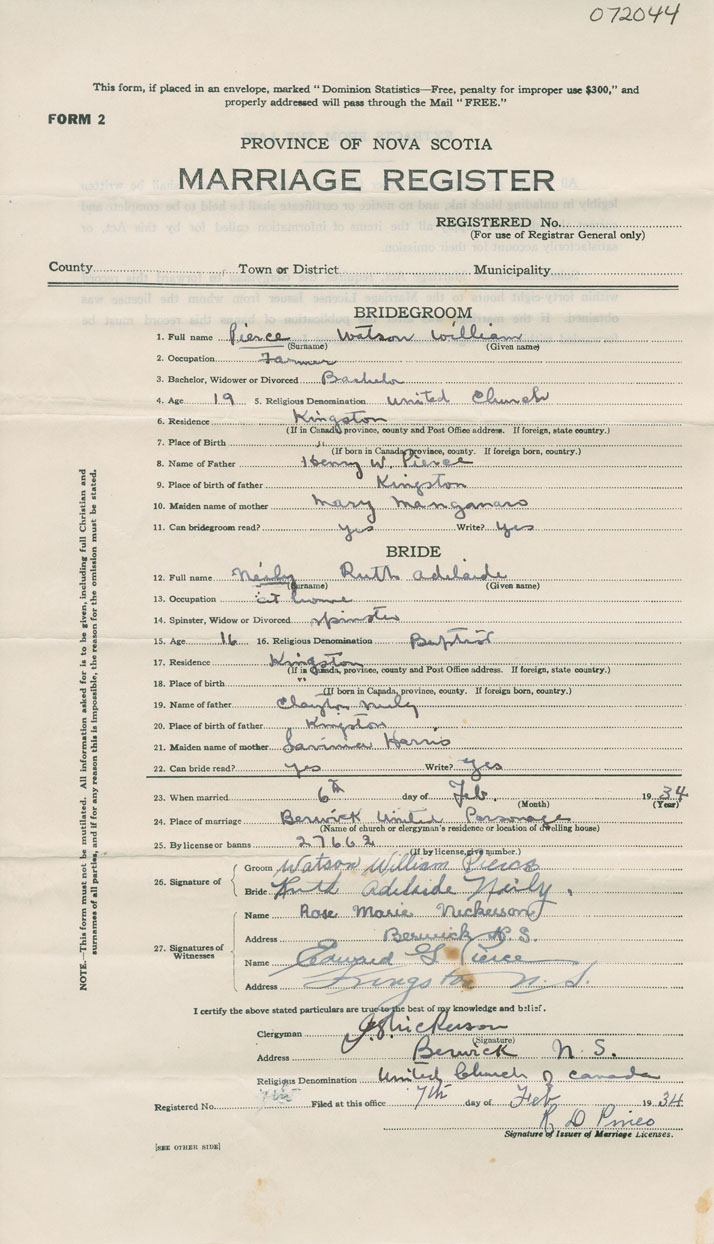 072044
This form, if placed in an envelope, marked "Dominion Statistics—Free, penalty for improper use $300," and
properly addressed will pass through the Mail "FREE."
FORM 2
PROVINCE OF NOVA SCOTIA
MARRIAGE REGISTER
REGISTERED No.
(For use of Registrar General only)
County Town or District Municipality
BRIDEGROOM
1. Full name Pierce Watson William
(Surname) (Given name)
2. Occupation Farmer
3. Bachelor, Widower or Divorced Bachelor
4. Age 19 5. Religious Denomination United Church
6. Residence Kingston
(If in Canada, province, county and Post Office address. If foreign, state country.)
7. Place of Birth "
(If born in Canada, province, county. If foreign born, country.)
8. Name of Father Henry W. Pierce
9. Place of birth of father Kingston
10. Maiden name of mother Mary
11. Can bridegroom read? Yes Write? Yes
BRIDE
12. Full name Neily Ruth Adelaide
(Surname) (Given name)
13. Occupation at home
14. Spinster, Widow or Divorced Spinster
15. Age 16 16. Religious Denomination Baptist
17. Residence Kingston
(If in Canada, province, county and Post Office address. If foreign, state country.)
18. Place of birth "
(If born in Canada, province, county. If foreign born, country.)
19. Name of father Clayton Neily
20. Place of birth of father Kingston
21. Maiden name of mother Lavinia Harris
22. Can bride read? Yes Write? Yes
23. When married 6th day of Feb. 1934
(Month) (Year)
24. Place of marriage Berwick United Parsonage
(Name of church or clergyman's residence or location of dwelling house)
25. By license or banns 27662
(If by license, give number.)
26. Signature of
Groom Watson William Pierce
Bride Ruth Adelaide Neily.
27. Signatures of Witnesses
Name Rose Marie Nickerson
Address Berwick N.S.
Name Edward G. Pierce
Address Kingston N.S.
I certify the above stated particulars are true to the best of my knowledge and belief.
Clergyman Nickerson
(Signature)
Address Berwick N.S.
Religious Denomination United Church of Canada
Registered No. Filed at this office 7th day of Feb 1934
R D Pineo
Signature of Issuer of Marriage Licenses.
[SEE OTHER SIDE]
NOTE.—This form must not be mutilated. All information asked for is to be given, including full Christian and
surnames of all parties, and if for any reason this is impossible, the reason for the omission must be stated.